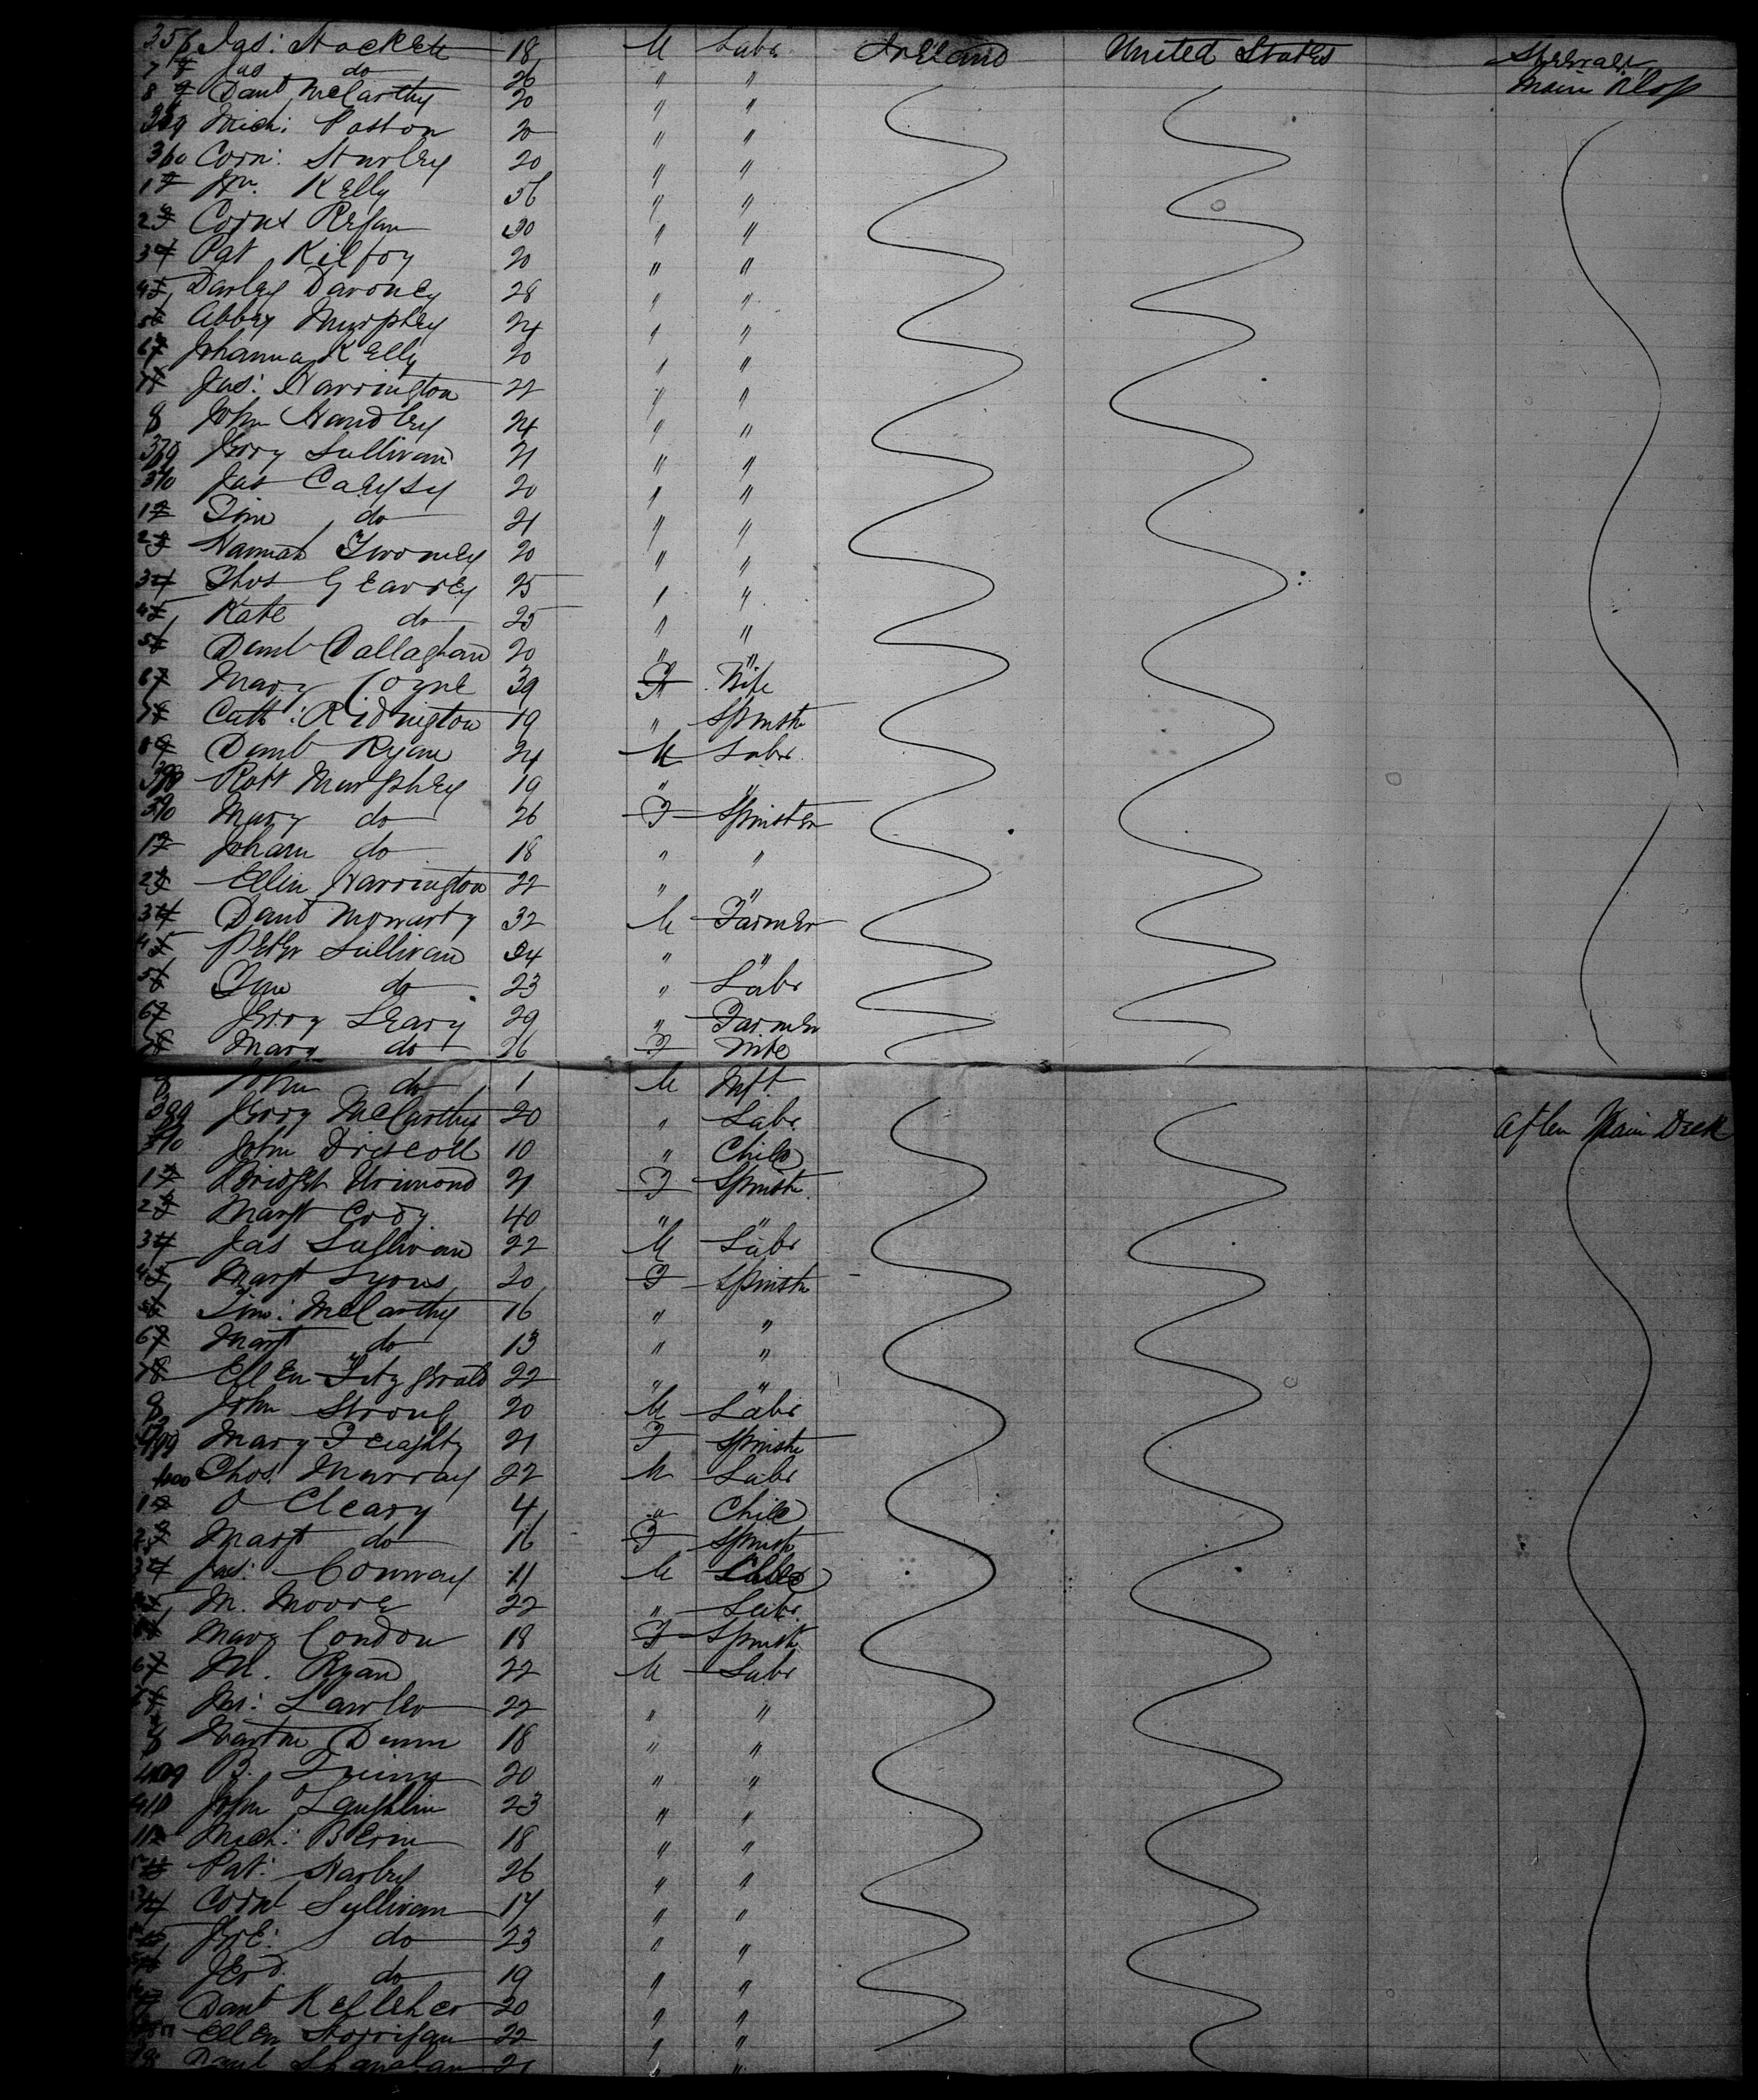 356 Jas: Hackett 18 M Labr Ireland United States Steerage
Jas do 26 " " Main
8 Danl McCarthy 20 " "
Mich: Paston 20 " "
360 Corn: Hurley 20 " "
1 Jno. Kelly 56 " "
2 Corns Regan 30 " "
3 Pat Kilfoy 20 " "
4 Darley Daroney 28 " "
5 Abbey Murphey 24 " "
6 Johanna Kelly 20 " "
7 Jas: Harrington 22 " "
8 John Handley 24 " "
Jerry Sullivan 21 " "
370 Jas Caseysy 20 " "
1 Tim do 21 " "
2 Hannah Twomey 20 " "
3 Thos Gearrey 25 " "
4 Kate do 25 " "
5 Danl Callaghan 20 " "
6 Mary Coyne 39 F Wife
7 Cath: Ridington 19 " Spinstr
8 Danl Ryan 24 M Labr
Robt Murphey 19 " "
Mary do 26 F Spinster
1 Johan do 18 " "
2 Ellin Harrington 22 " "
3 Danl Moriarty 32 M Farmer
4 Peter Sullivan 24 " "
5 do 23 " Labr
6 Jerry Leary 29 " Farmer
7 Mary do 26 F Wife
8 John do 1 M Inft
Jerry McCarthy 20 " Labr After Main Deck
John Driscoll 10 " Child
1 Bridget 21 F Spinstr
2 Margt Cody 40 " "
3 Jas Sullivan 22 M Labr
4 Margt Lyons 20 F Spinstr
5 Tim: McCarthy 16 " "
6 Margt do 13 " "
7 Ellen Fitzgerald 22 " "
8 John Strong 20 M Labr
Mary Feaghty 21 F Spinstr
400 Thos. Murray 22 M Labr
1 O Cleary 4 " Child
2 Margt do 16 F Spinstr
3 Jas: Conway 11 M Child
4 M. Moore 22 " Labr
5 Mary Condon 18 F Spinstr
6 M. Ryan 22 M Labr
7 Jno: Lawler 22 " "
8 Martin Dunn 18 " "
409 B. Quinn 20 " "
410 John Laughlin 23 " "
11 Mich: 18 " "
Pat: Harley 26 " "
Cornl Sullivan 17 " "
Jre: do 23 " "
Jerd. do 19 " "
Danl Kelleher 20 " "
Ellen Horrigan 22 " "
Danl Shanahan 21 " "